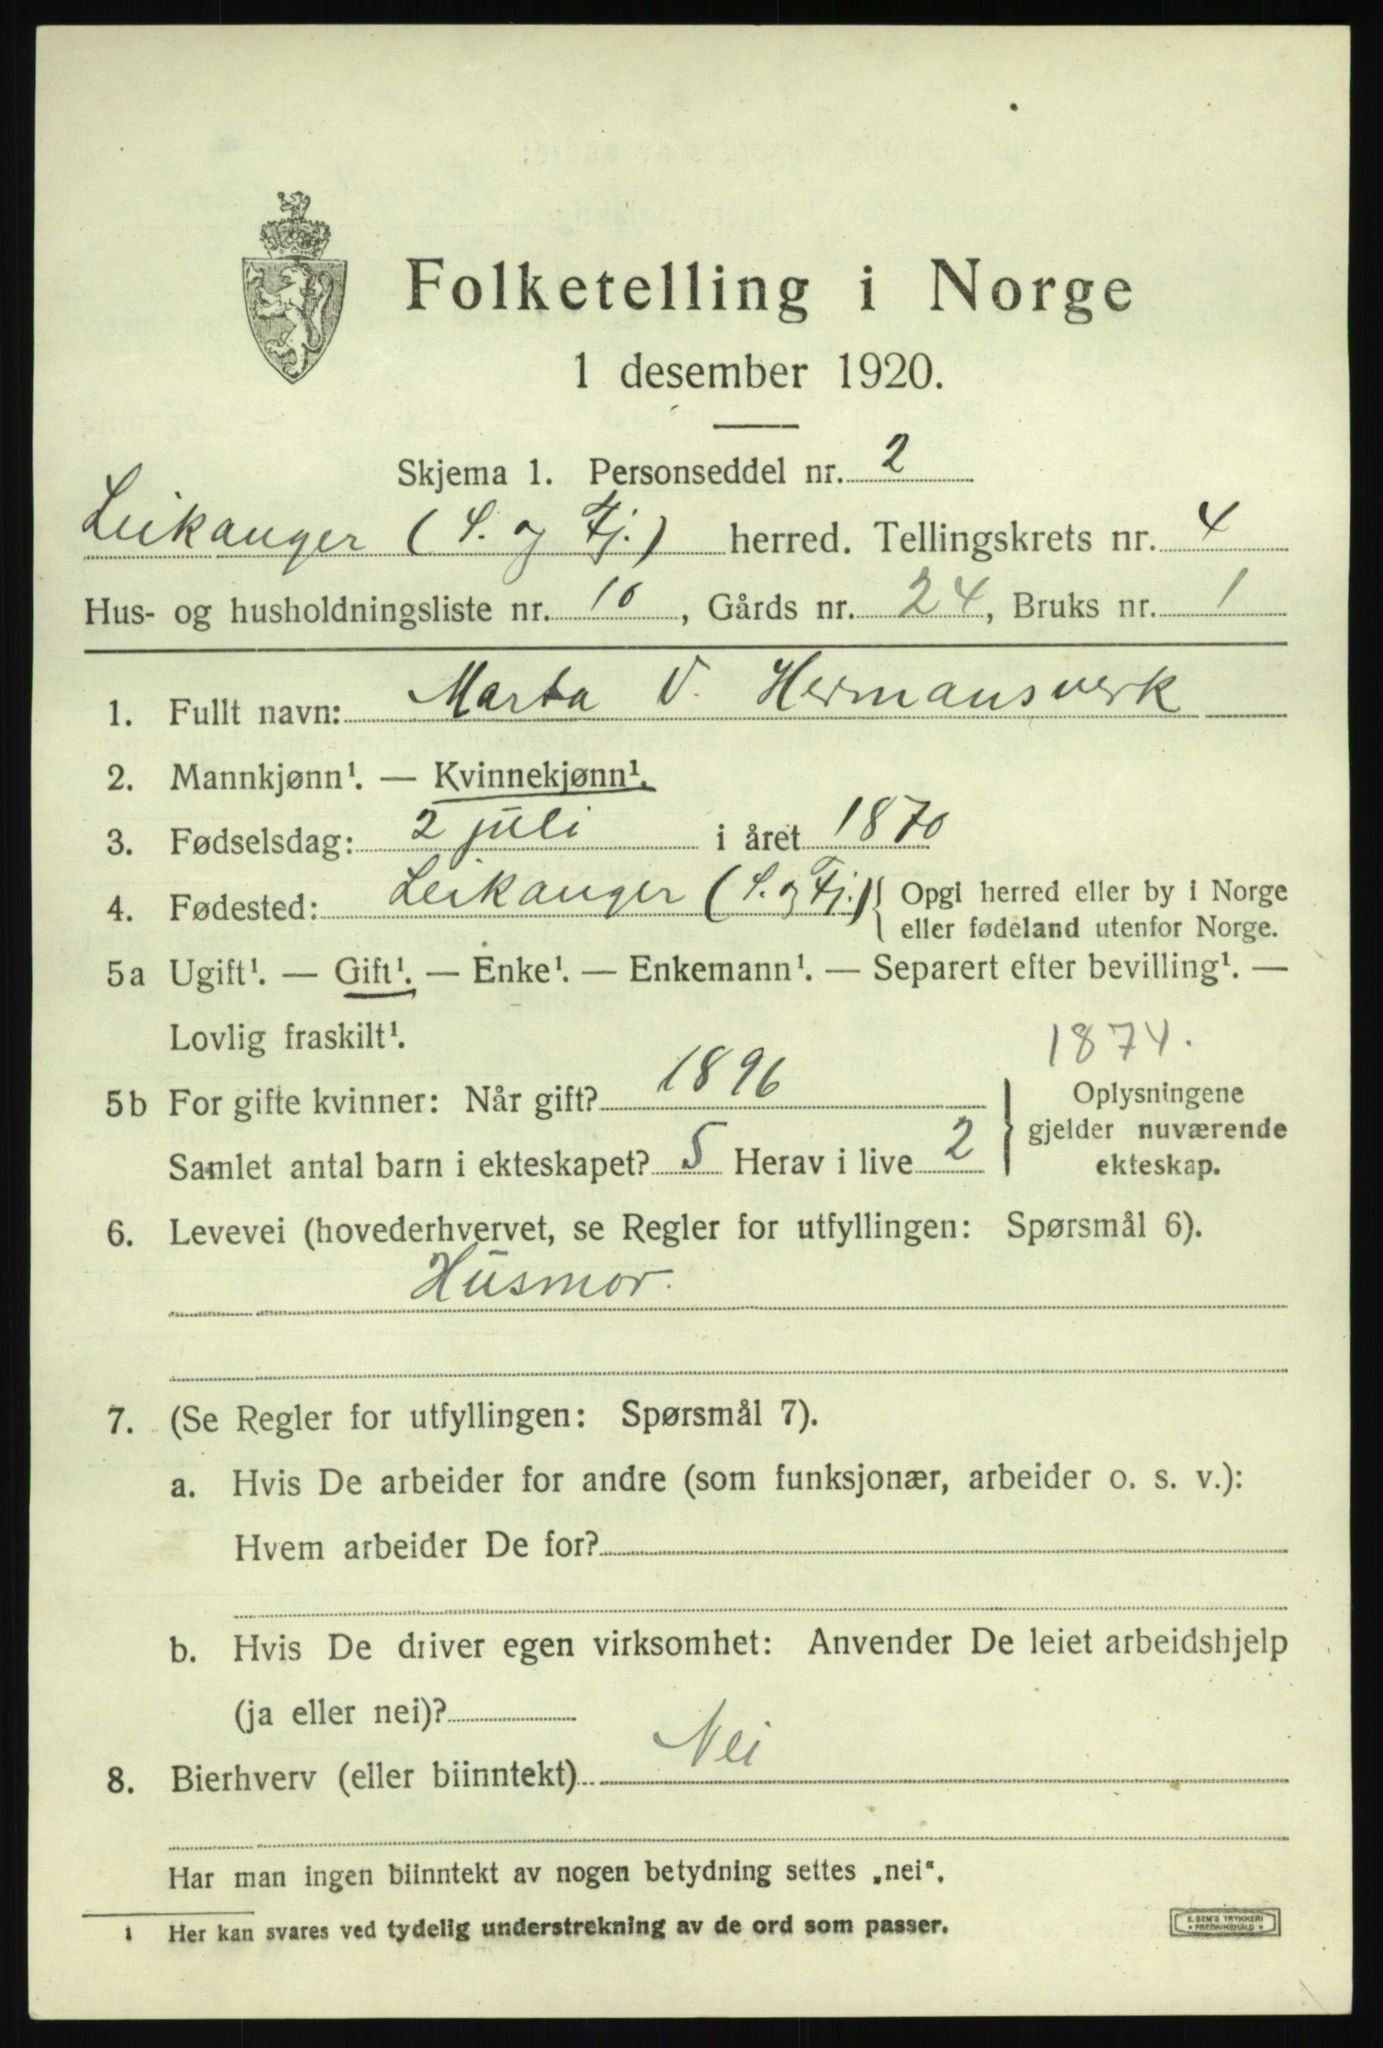 Folketelling i Norge
1 desember 1920.
Skjema 1. Personseddel nr. 2
Leikanger (S. og Fj.) herred. Tellingskrets nr. 4
Hus- og husholdningsliste nr. 10, Gårds nr. 24, Bruks nr. 1
1. Fullt navn: Marta V. Hermansverk
2. Mannkjønn¹. — Kvinnekjønn¹.
3. Fødselsdag: 2 juli i året 1870
4. Fødested: Leikanger (S. og Fj.) { Opgi herred eller by i Norge
eller fødeland utenfor Norge.
5a Ugift¹. — Gift¹. — Enke¹. — Enkemann¹. — Separert efter bevilling¹. —
Lovlig fraskilt¹.
1874.
5b For gifte kvinner: Når gift? 1896
Samlet antal barn i ekteskapet? 5 Herav i live 2
} Oplysningene
gjelder nuværende
ekteskap.
6. Levevei (hovederhvervet, se Regler for utfyllingen: Spørsmål 6).
Husmor.
7. (Se Regler for utfyllingen: Spørsmål 7).
a. Hvis De arbeider for andre (som funksjonær, arbeider o. s. v.):
Hvem arbeider De for?
b. Hvis De driver egen virksomhet: Anvender De leiet arbeidshjelp
(ja eller nei)?
8. Bierhverv (eller biinntekt) Nei
Har man ingen biinntekt av nogen betydning settes „nei“.
1 Her kan svares ved tydelig understrekning av de ord som passer.
E. SEM'S TRYKKERI
FREDRIKSHALD